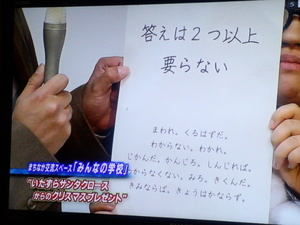 答えは2つ以上
要らない
まわれ、くるはずだ。
わからない。わかれ、
じかんだ。かんじろ。しんじれば。
からなくない。みろ。きくんだ。
きみならば。きょうはかならず。
まちなか交流スペース「みんなの学校」
"いたずらサンタクロース
からのクリスマスプレゼント"